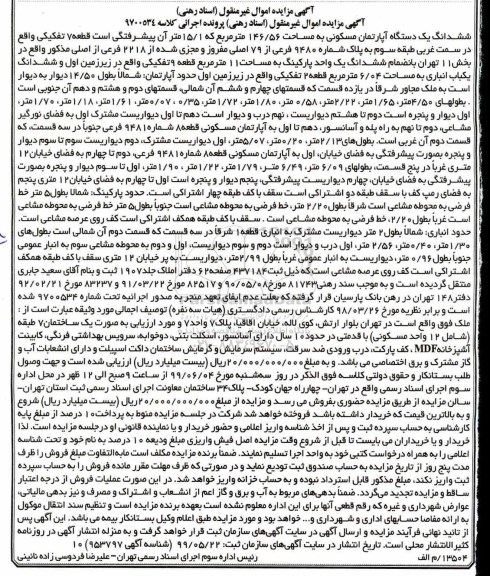 آگهی مزایده اموال غیرمنقول (اسناد رهنی)
آگهی مزایده اموال غیرمنقول (اسناد رهنی) پرونده اجرائی کلاسه ۹۷۰۰۵۳۴
ششدانگ یک دستگاه آپارتمان مسکونی به مساحت ۱۴۶/۵۶ مترمربع که ۱/۱۵ متر آن پیشرفتگی است قطعه ۷ تفکیکی واقع
در سمت غربی طبقه سوم به پلاک شماره ۹۴۸۰ فرعی از ۷۹ اصلی مفروز و مجزی شده از ۲۲۱۸ فرعی از اصلی مذکور واقع در
بخش ۱۱ تهران بانضمام ششدانگ یک واحد پارکینگ به مساحت ۱۱ مترمربع قطعه ۹ تفکیکی واقع در زیرزمین اول و ششدانگ
یکباب انباری به مساحت ۶/۰۴ مترمربع قطعه ۲ تفکیکی واقع در زیرزمین اول حدود آپارتمان: شمالا بطول ۱۴/۵۰ دیوار به دیوار
است به ملک مجاور شرقا در یازده قسمت که قسمتهای چهارم و ششم آن شمالی، قسمتهای دوم و هشتم و دهم آن جنوبی است
اول دیوار و پنجره است دوم تا هشتم دیواریست، نهم درب و دیوار است دهم تا اول دیواریست مشترک اول به فضای نورگیر
مشاعی، دوم تا نهم به راه پله و آسانسور، دهم تا اول به آپارتمان مسکونی قطعه ۸ شماره ۹۴۸۱ فرعی جنوبا در سه قسمت، که
قسمت دوم آن غربی است. بطول‌های ۲/۱۳ متر، ۰/۲۰ متر، ۵/۰۷ متر، اول دیواریست مشترک، دوم دیواریست سوم تا سوم دیوار
و پنجره بصورت پیشرفتگی به فضای خیابان، اول به آپارتمان مسکونی قطعه ۸ شماره ۹۴۸۱ فرعی، دوم تا چهارم به فضای خیابان ۱۲
متری غربا در پنج قسمت، بطولهای ۶/۰۹ متر، ۶/۴۹ متر، ۱/۷۹ متر، ۱/۲۲ متر، ۱/۹۰ متر، اول تا سوم دیوار و پنجره بصورت
پیشرفتگی به فضای خیابان، چهارم دیواریست پیشرفتگی، پنجم دیوار و پنجره است اول تا چهارم به فضای خیابان ۱۲ متری پنجم
به فضای رمپ کف با سقف طبقه دو اشتراکی است سقف با کف طبقه چهار اشتراکی است. حدود پارکینگ: شمالا بطول ۵ متر خط
فرضی به محوطه مشاعی است شرقا بطول ۲/۲۰ متر، خط فرضی به محوطه مشاعی است جنوبا بطول ۵ متر خط فرضی به محوطه مشاعی
است غربا بطول ۲/۲۰، خط فرضی به محوطه مشاعی است. سقف با کف طبقه همکف اشتراکی است کف روی عرصه مشاعی است.
حدود انباری: شمالا بطول ۲ متر دیواریست مشترک به انباری قطعه ۱ شرقا در سه قسمت که قسمت دوم آن شمالی است بطول‌های
۱/۳۰ متر، ۰/۴۰ متر، ۲/۵۶ متر، اول درب و دیوار است دوم و سوم دیواریست، اول و دوم به محوطه مشاعی سوم به انبار عمومی
جنوبا بطول ۰/۹۶ متر، دیواریست به انبار عمومی غربا بطول ۲/۹۹ متر، دیواریست به پر خیابان ۱۲ متری سقف با کف طبقه همکف
اشتراکی است کف روی عرصه مشاعی است که ذیل ثبت ۴۳۷۱۸۴ صفحه ۶۲ دفتر املاک جلد ۱۹۰۷ ثبت و بنام آقای سعید جابری
منتقل گردیده است و به موجب سند رهنی ۸۱۷۴۳ مورخ ۹۰/۰۵/۰۸ و ۸۲۵۱۷ مورخ ۹۱/۰۳/۲۲ و ۸۳۲۳۷ مورخ ۹۲/۰۲/۲۱
دفتر ۱۴۸ تهران در رهن بانک پارسیان قرار گرفته که بعلت عدم ایفای تعهد منجر به صدور اجرائیه تحت شماره ۹۷۰۰۵۳۴ شده
است و برابر نظریه مورخ ۹۸/۰۳/۲۶ کارشناس رسمی دادگستری (هیات سه نفره) توصیف اجمالی مورد وثیقه عبارت است از:
ملک فوق واقع است در تهران بلوار ارتش، کوی لاله، خیابان اقاقیا، پلاک ۷ واحد ۷ و مورد ارزیابی به صورت یک ساختمان ۷ طبقه
(شامل ۱۲ واحد مسکونی) با قدمتی در حدود ۱۰ سال دارای آسانسور، اسکلت بتنی، دوخوابه، سرویس بهداشتی فرنگی، کابینت
آشپزخانه MDF، کف پارکت، درب ورودی ضد سرقت، سیستم سرمایش و گرمایش ساختمان داکت اسپیلت و دارای انشعابات آب و
گاز مشترک و برق اختصاصی می باشد. و به مبلغ ۲۰/۰۰۰/۰۰۰/۰۰۰ ریال (بیست میلیارد ریال) ارزیابی شده است و جهت وصول
طلب بستانکار و حقوق دولتی کلاسه فوق الذکر در روز سه‌شنبه مورخ ۹۹/۰۶/۰۴ از ساعت ۹ صبح الی ۱۲ ظهر در محل اداره
سوم اجرای اسناد رسمی واقع در تهران- چهارراه جهان کودک- پلاک ۳۴ ساختمان معاونت اجرای اسناد رسمی ثبت استان تهران-
سالن مزایده از طریق مزایده حضوری بفروش می رسد و مزایده از مبلغ ۲۰/۰۰۰/۰۰۰/۰۰۰ ریال (بیست میلیارد ریال) شروع
و به بالاترین قیمت که خریدار داشته باشد فروخته خواهد شد شرکت در جلسه مزایده منوط به پرداخت ۱۰ درصد از مبلغ پایه
کارشناسی به حساب سپرده ثبت و پس از اخذ شناسه واریز اعلامی و حضور خریدار و یا نماینده قانونی او درجلسه مزایده است. لذا
خریدار و یا خریداران می بایست تا قبل از شروع وقت مزایده اصل فیش واریزی مبلغ ودیعه ۱۰ درصد به نام خود و تحت شناسه
اعلامی را به همراه درخواست کتبی خود به واحد اجرا تسلیم نمایند. ضمنا برنده مزایده مکلف است مابه‌التفاوت مبلغ فروش را ظرف
مدت پنج روز از تاریخ مزایده به حساب صندوق ثبت تودیع نماید و در صورتی که ظرف مهلت مقرر مانده فروش را به حساب سپرده
ثبت واریز نکند، مبلغ مذکور قابل استرداد نبوده و به حساب خزانه واریز خواهد شد. در این صورت عملیات فروش از درجه اعتبار
ساقط و مزایده تجدید می‌گردد. ضمنا بدهی‌های مربوط به آب و برق و گاز اعم از انشعاب و اشتراک و مصرف و نیز بدهی مالیاتی،
عوارض شهرداری و غیره که رقم قطعی آنها برای این اداره معلوم نشده است بعهده برنده مزایده است و تنظیم سند انتقال موکول
به ارائه مفاصا حسابهای اداری و شهرداری و... خواهد بود و مورد مزایده طبق اعلام وکیل بستانکار بیمه می باشد. این آگهی پس
از تائید نهائی فرآیند مزایده و ارسال آگهی در سایت آگهی‌های سازمان ثبت قرار خواهد گرفت و به منزله انتشار آگهی در روزنامه
کثیرالانتشار محلی است. تاریخ انتشار در سایت آگهی‌های سازمان ثبت: ۹۹/۰۵/۲۲ (شناسه آگهی ۹۵۳۷۹۷) ۱۰
۱۳۵۰۴/م الف رئیس اداره سوم اجرای اسناد رسمی تهران- علیرضا فردوسی زاده نائینی